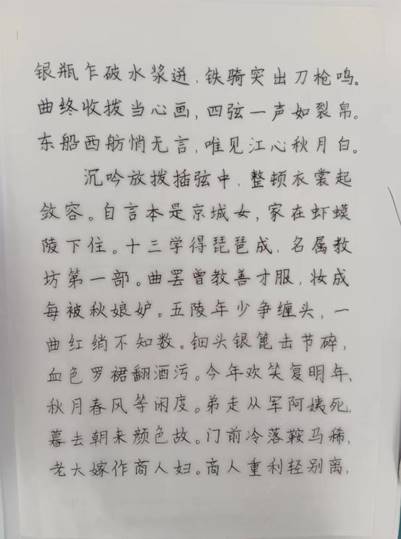 银瓶乍破水浆迸,铁骑突出刀枪鸣。
曲终收拨当心画,四弦一声如裂帛。
东船西舫悄无言,唯见江心秋月白。
沉吟放拨插弦中,整顿衣裳起
敛容。自言本是京城女,家在虾蟆
陵下住。十三学得琵琶成,名属教
坊第一部。曲罢曾教善才服,妆成
每被秋娘妒。五陵年少争缠头,一
曲红绡不知数。钿头银篦击节碎,
血色罗裙翻酒污。今年欢笑复明年,
秋月春风等闲度。弟走从军阿姨死,
暮去朝来颜色故。门前冷落鞍马稀,
老大嫁作商人妇。商人重利轻别离,